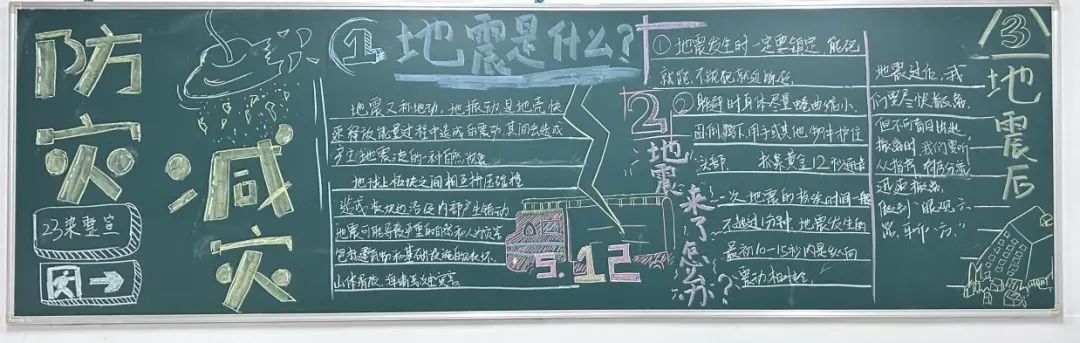 防灾
减灾
23染整宣
1 地震是什么?
地震又称地动、地振动,是地壳快
速释放能量过程中造成的震动,其间会造成
产生地震波的一种自然现象
地球上板块之间相互挤压碰撞
造成板块边沿及内部产生错动
地震可能导致严重的自然和人为灾害
包括建筑物和基础设施的破坏、
山体滑坡、海啸等次生灾害。
5.12
2 地震来了怎么办?
① 地震发生时一定要镇定 能跑
就跑,不能跑就近躲
② 躲避时身体尽量蜷曲缩小,
用手或其他物件护住
头部 抓紧黄金12秒
一次地震的持续时间一般
不超过1分钟,地震发生的
最初10-15秒内是纵向
震动相对轻,
③ 地震后
地震过后,我
们要尽快撤离,
但不可盲目
撤离时,我们要听
从指挥,有序分流
迅速撤离
做到“眼观六
路,耳听八方。”